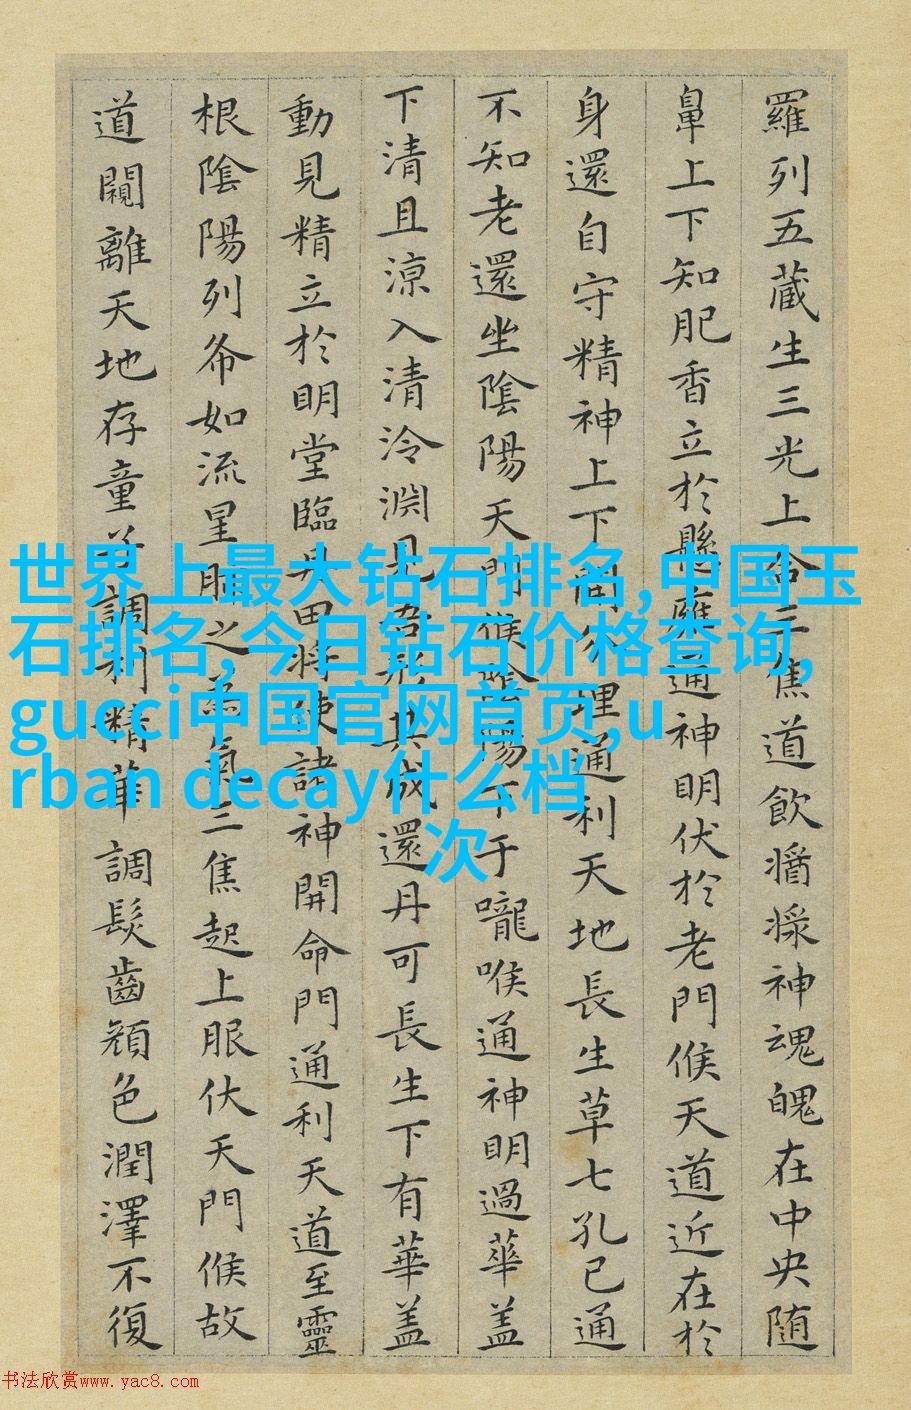 羅列五藏生三光上合三焦道飲醬漿神魂魄在中央随
鼻上下知肥香立於懸癰通神明伏於老門候天道近在於
身還自守精神上下開分理通利天地長生草七孔已通
不知老還坐陰陽天門候陰陽下于嚨喉通神明過華盖
下清且涼入清泠淵見吾形其成還丹可長生下有華盖
動見精立於明堂臨丹田将使諸神開命門通利天道至靈
根陰陽列布如流星肺之為氣三焦起上服伏天門候故
道闚離天地存童子調利精華調髮齒顔色潤澤不復
世界上最大钻石排名,中国玉
石排名,今日钻石价格查询,
gucci中国官网首页,u
rban decay什么档
次
书法欣赏www.yac8.com